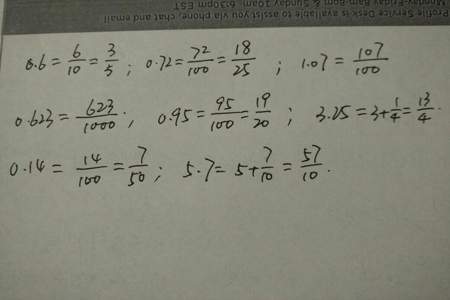 Profile Service Desk is available to assist you via phone, chat and email
Monday-Friday 8am-8pm & Sunday 10am-6:30pm EST
0.6 = 6/10 = 3/5 ; 0.72 = 72/100 = 18/25 ; 1.07 = 107/100
0.623 = 623/1000 ; 0.95 = 95/100 = 19/20 ; 3.25 = 3+1/4 = 13/4.
0.14 = 14/100 = 7/50 ; 5.7 = 5+7/10 = 57/10.